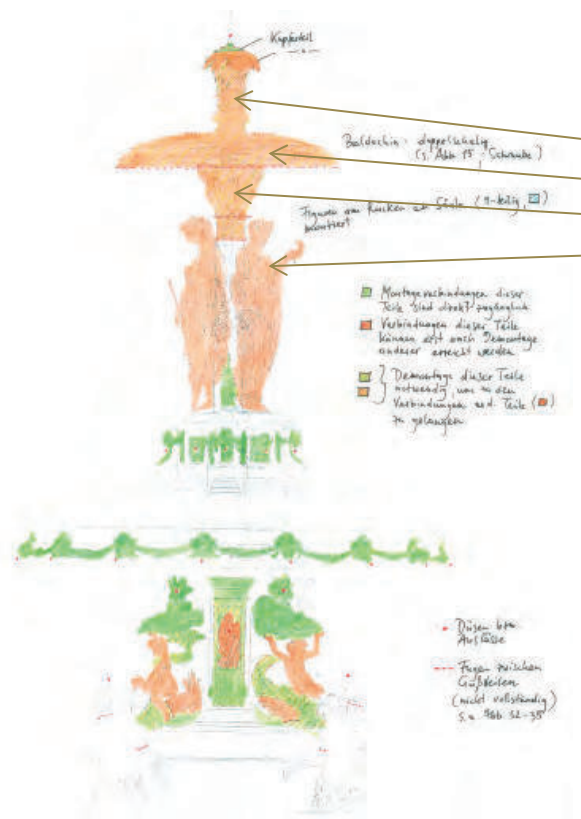 Kupferteil
Baldachin: doppelschalig
(s. Abb 15: Schraube)
Figuren am Rücken an Säule (9-teilig,
montiert
Montageverbindungen dieser
Teile sind direkt zugänglich
Verbindungen dieser Teile
können erst nach Demontage
anderer erreicht werden
Demontage dieser Teile
notwendig um zu den
Verbindungen and. Teile
zu gelangen
Düsen bzw.
Auslässe
Fugen zwischen
Gußteilen
(nicht vollständig)
s.a. Abb 32-35